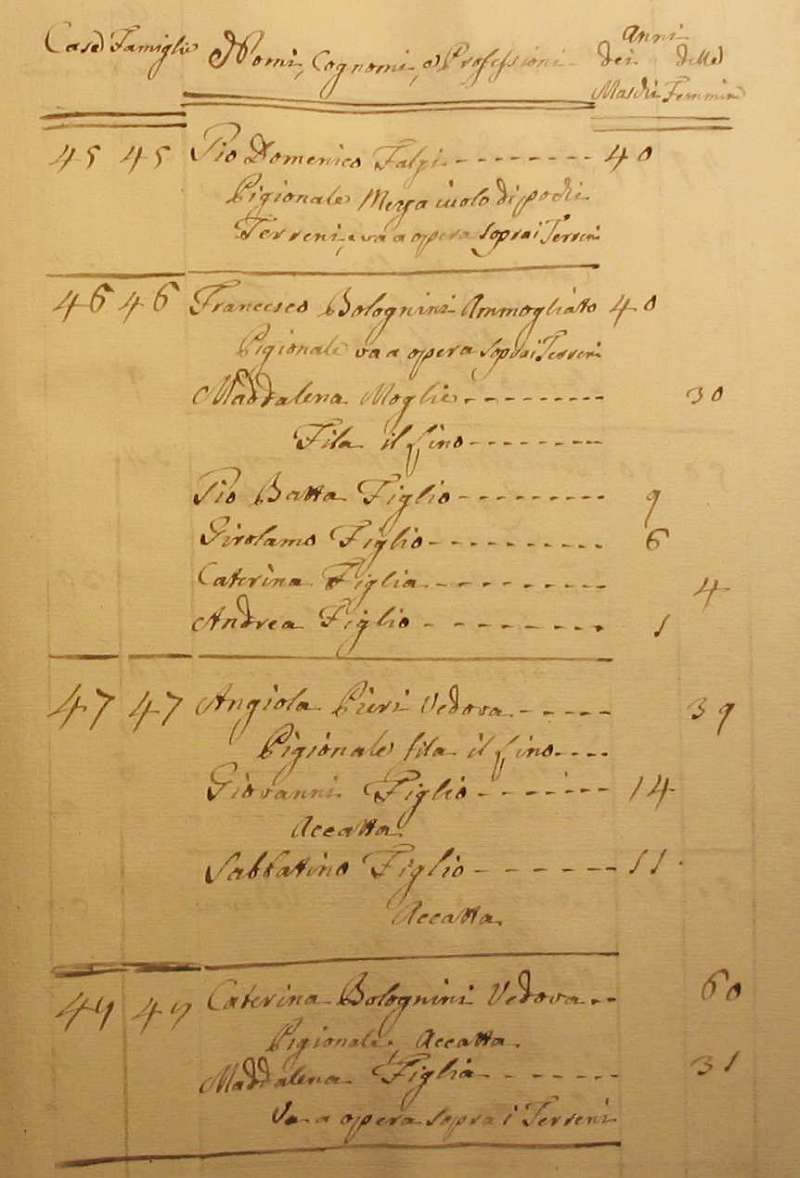 Case Famiglie Nomi, Cognomi, e Professioni Anni
dei delle
Maschi Femmine
45 45 Pio Domenico Falpi 40
Pigionale Merga iuolo di pochi
Terreni, e va a opera sopra i Terreni
46 46 Francesco Bolognini Ammogliato 40
Pigionale va a opera sopra i Terreni
Maddalena Moglie 30
Fila il fino
Pio Batta Figlio 9
Girolamo Figlio 6
Caterina Figlia 4
Andrea Figlio 1
47 47 Angiola Pieri Vedova 39
Pigionale fila il fino
Giovanni Figlio 14
Accatta
Sabbatino Figlio 11
Accatta
Caterina Bolognini Vedova 60
Pigionale, Accatta
Maddalena Figlia 31
Va a opera sopra i Terreni